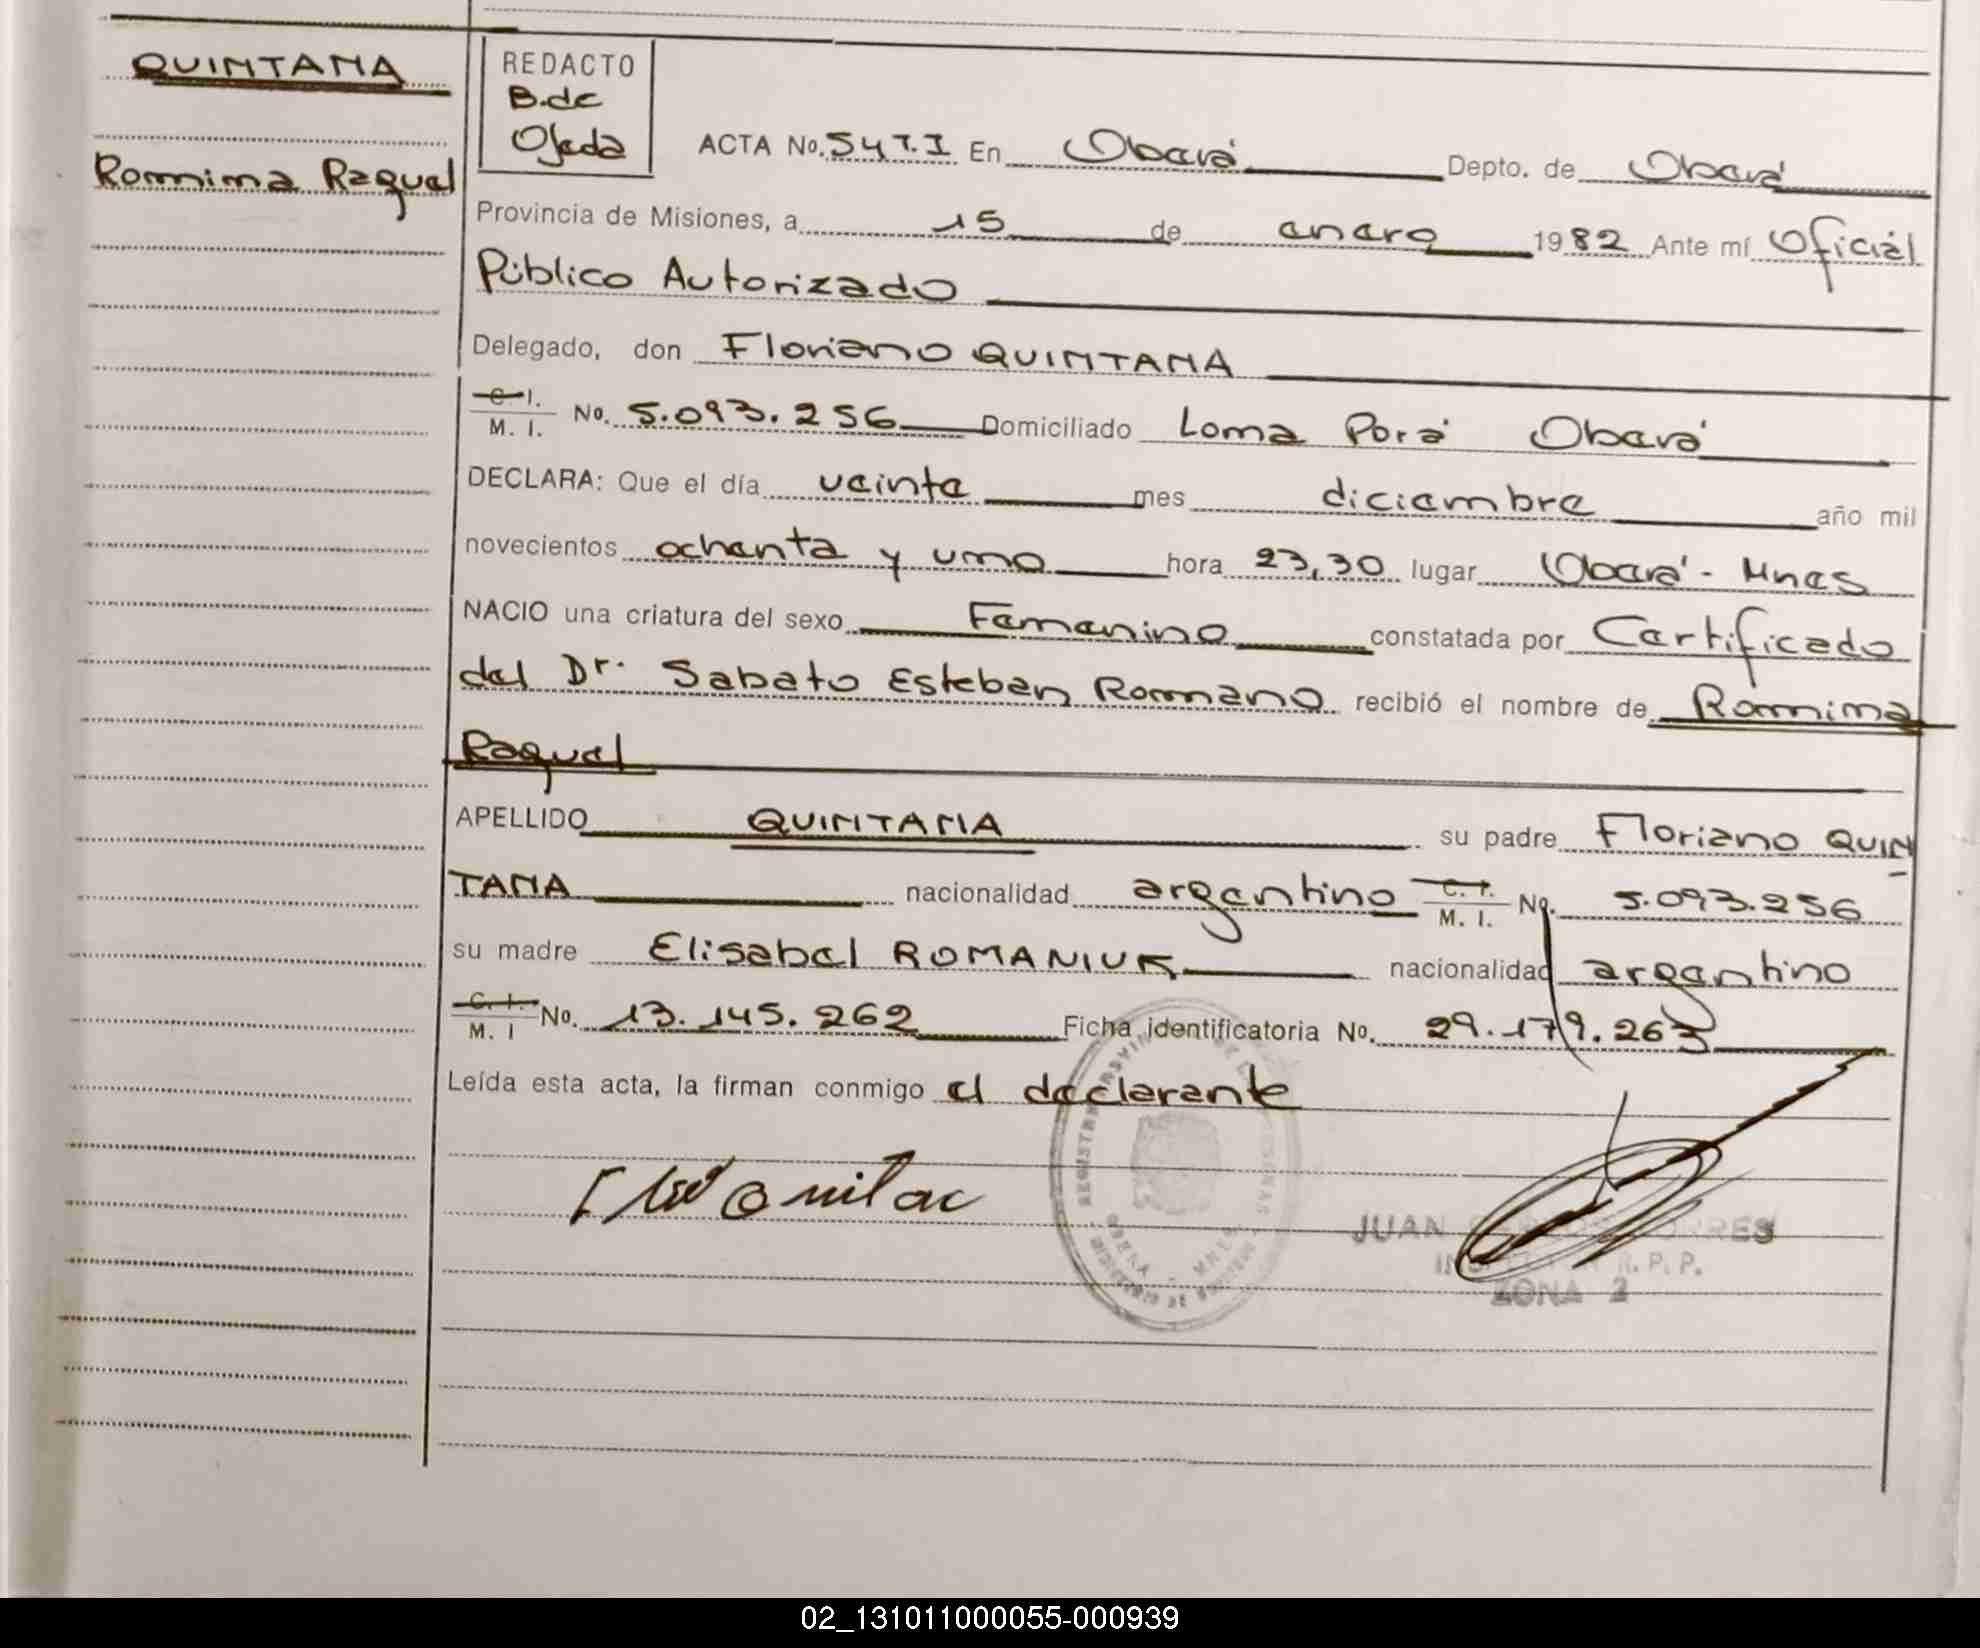 QUINTANA
Romina Raquel
REDACTO
B. de
Ojeda
ACTA No. 54 T.I En Oberá Depto. de Oberá
Provincia de Misiones, a 15 de enero 1982 Ante mí Oficial
Público Autorizado
Delegado, don Floriano QUINTANA
C. I.
M. I. No. 5.093.256 Domiciliado Loma Porá Oberá
DECLARA: Que el día veinte mes diciembre año mil
novecientos ochenta y uno hora 23,30 lugar Oberá - Mnes
NACIO una criatura del sexo Femenino constatada por Certificado
del Dr. Sabato Esteban Romano recibió el nombre de Romina
Raquel
APELLIDO QUINTANA su padre Floriano QUIN
TANA nacionalidad argentino C. I. M. I. No. 5.093.256
su madre Elisabel ROMANIUK nacionalidad argentino
C. I. M. I No. 13.145.262 Ficha identificatoria No. 29.179.263
Leída esta acta, la firman conmigo el declarante
JUAN TORRES
R. P. P.
ZONA 2
02_131011000055-000939